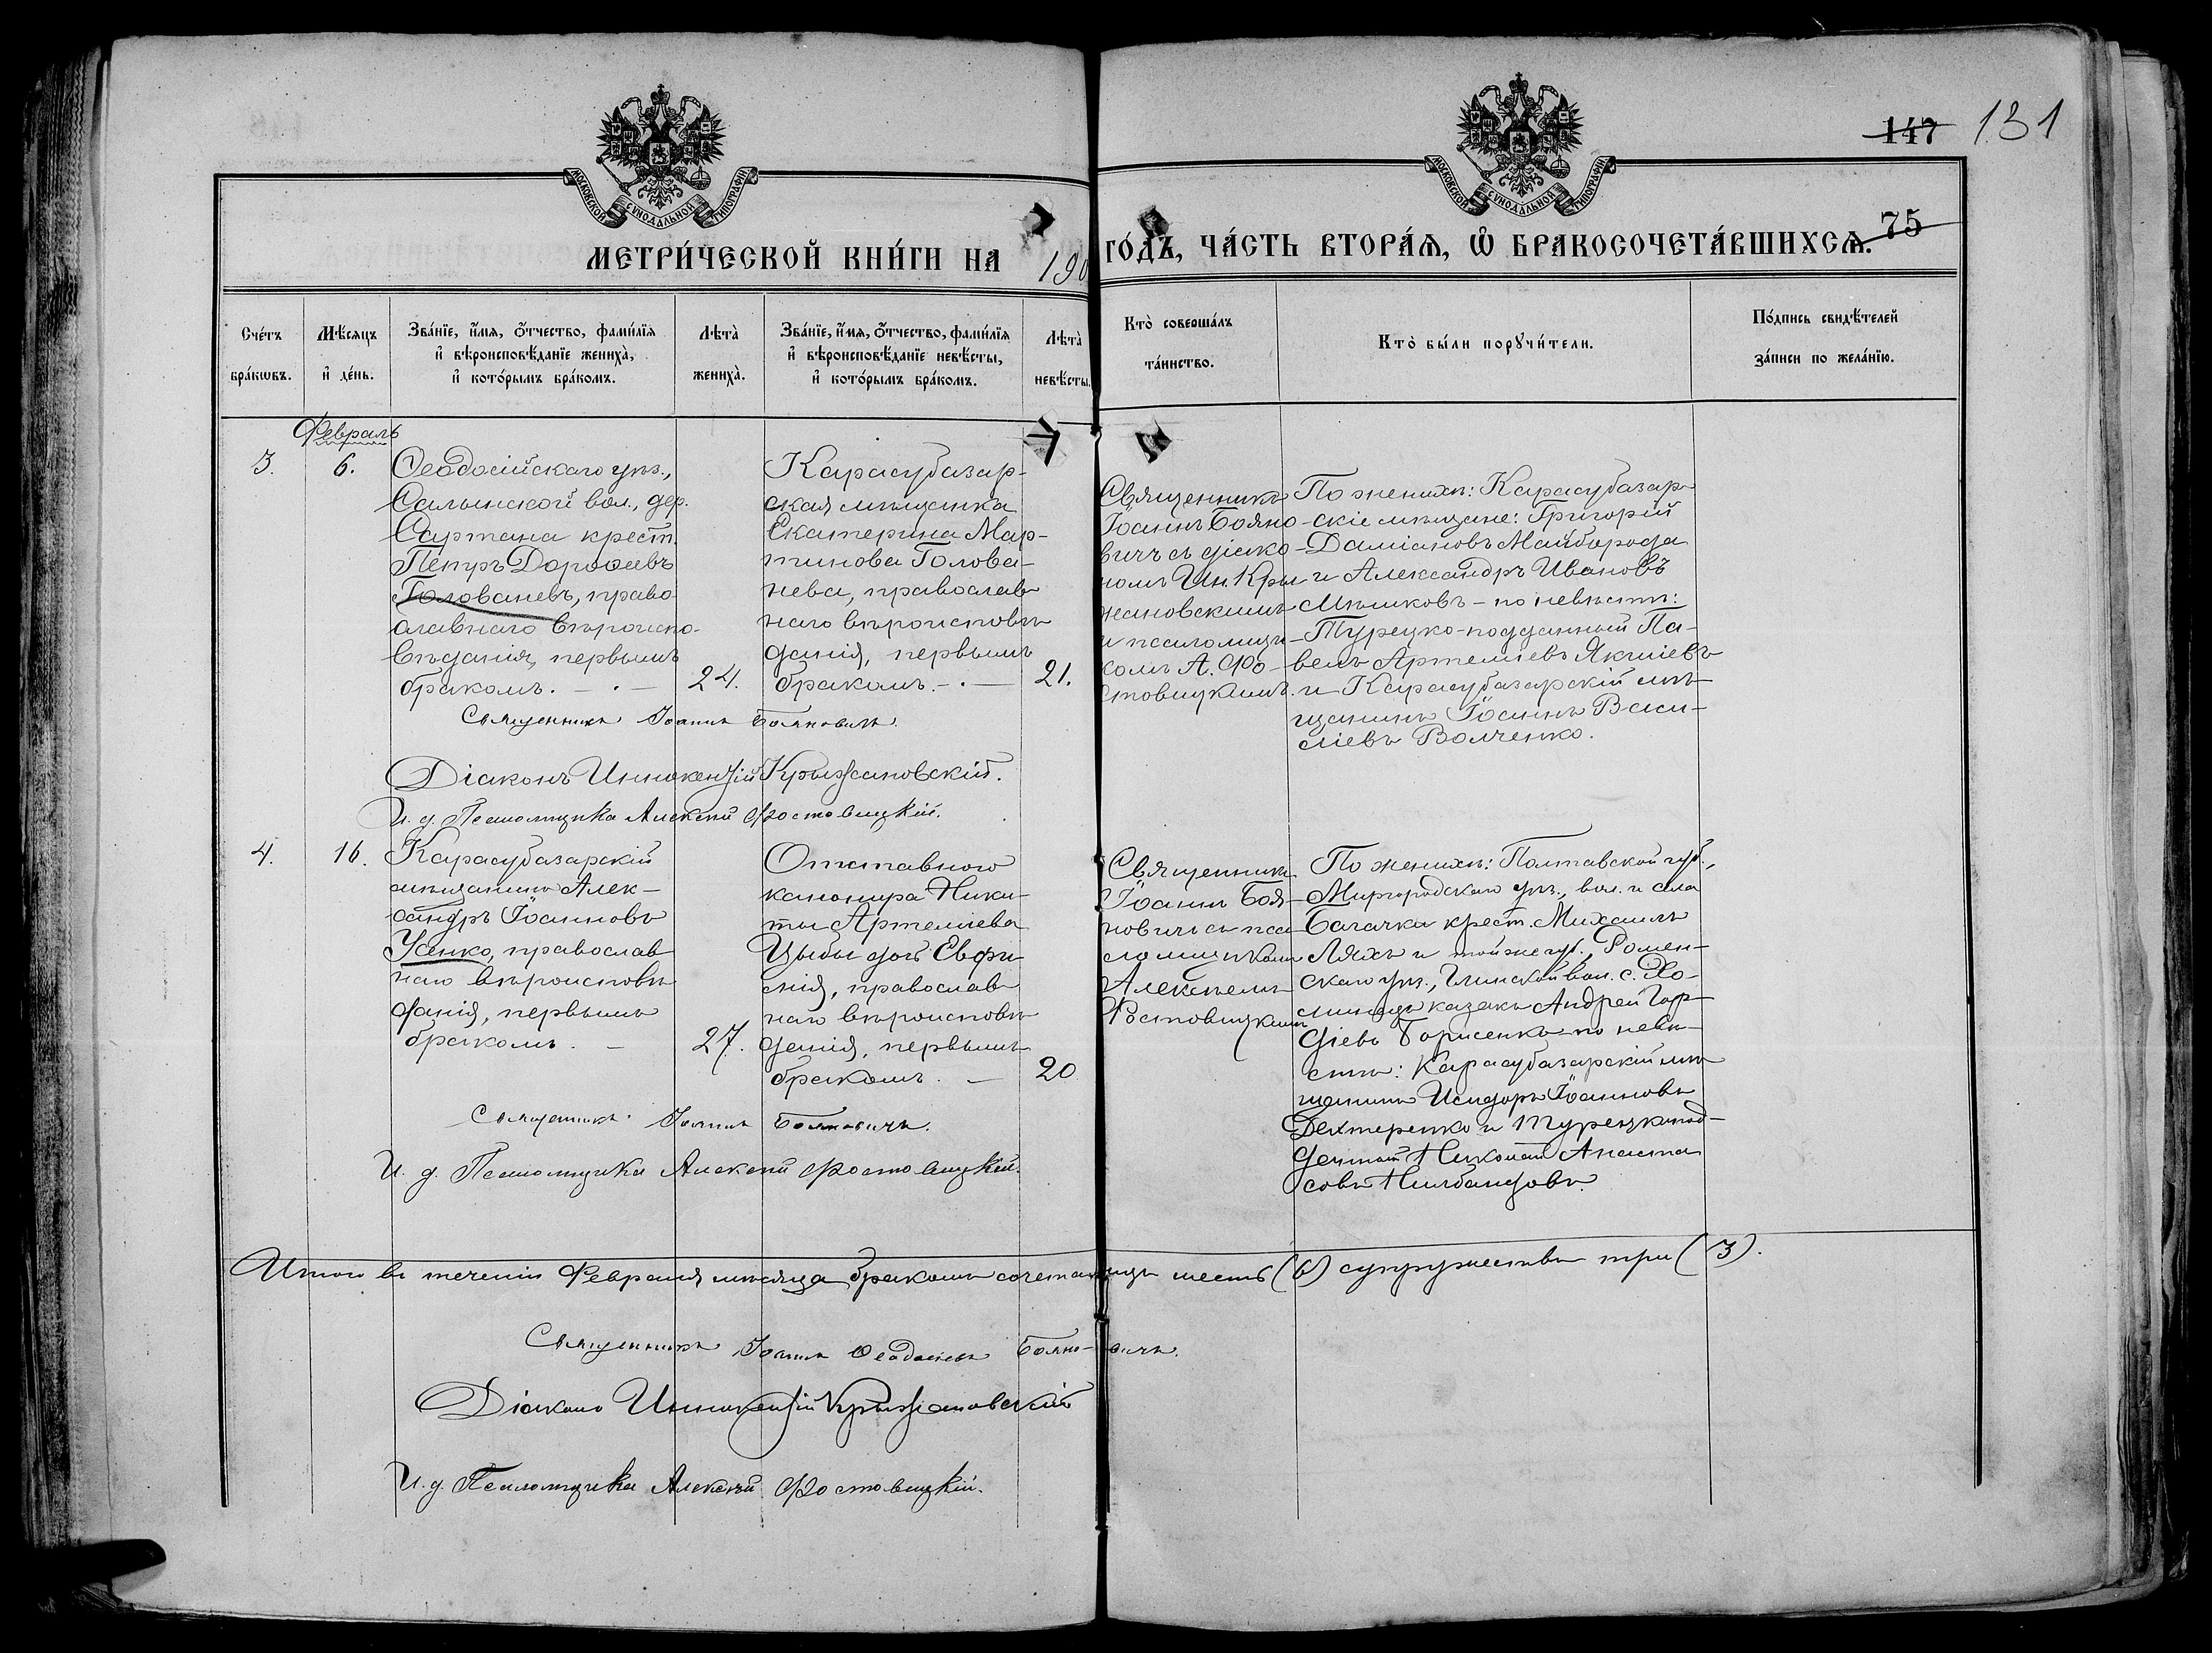 147 131
МОСКОВСКОЙ СѴНОДАЛЬНОЙ ТИПОГРАФІИ
МОСКОВСКОЙ СѴНОДАЛЬНОЙ ТИПОГРАФІИ
75
МЕТРИ́ЧЕСКОЙ КНИ́ГИ НА 190
ГО́ДЪ, ЧА́СТЬ ВТОРА́Ѧ, Ѽ БРАКОСОЧЕТА́ВШИХСѦ.
Сче́тъ бра́кѡвъ.
Мѣ́сяцъ и де́нь.
Зва́нїе, и҆́мя, ѻ҆́тчество, фами́лїя
и҆ вѣроисповѣ́данїе жениха̀,
и҆ кото́рымъ бра́комъ.
Лѣта̀ жениха̀.
Зва́нїе, и҆́мя, ѻ҆́тчество, фами́лїя
и҆ вѣроисповѣ́данїе невѣ́сты,
и҆ кото́рымъ бра́комъ.
Лѣта̀ невѣ́сты.
Кто̀ соверша́лъ
та́инство.
Кто̀ бы́ли порꙋчи́тели.
По́дпись свидѣ́телей
за́писи по жела́нїю.
Февраль
3.
6.
Ѳеодосійскаго уѣз.,
Салынской вол., дер.
Сартана крест.
Петръ Дороѳеевъ
Голованевъ, право-
славнаго вѣроиспо-
вѣданія, первымъ
бракомъ. — . —
24.
Карасубазар-
ская мѣщанка
Екатерина Мар-
тинова Голова-
нева, православ-
наго вѣроисповѣ-
данія, первымъ
бракомъ. — . —
21.
Священникъ
Іоаннъ Бояно-
вичъ съ діако-
номъ Ин. Кры-
жановскимъ
и псаломщи-
комъ А. Фо-
стовицкимъ.
По женихѣ: Карасубазар-
скіе мѣщане: Григорій
Даміановъ Майборода
и Александръ Ивановъ
Мѣшковъ — по невѣстѣ:
Турецко-подданный Па-
велъ Артеміевъ Якшіевъ
и Карасубазарскій мѣ-
щанинъ Іоаннъ Васи-
ліевъ Волченко.
Священникъ Іоаннъ Бояновичъ.
Діаконъ Иннокентій Крыжановскій.
И. д. Псаломщика Алексѣй Фостовицкій.
4.
16.
Карасубазарскій
мѣщанинъ Алек-
сандръ Іоанновъ
Усенко, православ-
наго вѣроисповѣ-
данія, первымъ
бракомъ. —
27.
Отставного
канонира Ники-
ты Артеміева
Цыбы дочь Евфи-
мія, православ-
наго вѣроисповѣ-
данія, первымъ
бракомъ. —
20
Священникъ
Іоаннъ Боя-
новичъ съ пса-
ломщикомъ
Алексѣемъ
Фостовицкимъ
По женихѣ: Полтавской губ.,
Миргородскаго уѣз., вол. и села
Багачки крест. Михаилъ
Ляхъ и той же губ., Ромен-
скаго уѣз., Глинской вол. с. Хо-
минецъ казакъ Андрей Гор-
діевъ Борисенко — по невѣ-
стѣ: Карасубазарскій мѣ-
щанинъ Исидоръ Іоанновъ
Дехтеренко и Турецкопод-
данный Николай Анаста-
совъ
Священникъ Іоаннъ Бояновичъ.
И. д. Псаломщика Алексѣй Фостовицкій.
Итого въ теченіи Февраля мѣсяца бракомъ сочетан лицъ шесть (6) супружествъ три (3).
Священникъ Іоаннъ Ѳеодосіевъ Бояно-вичъ.
Діаконъ Иннокентій Крыжановскій
И. д. Псаломщика Алексѣй Фостовицкій.